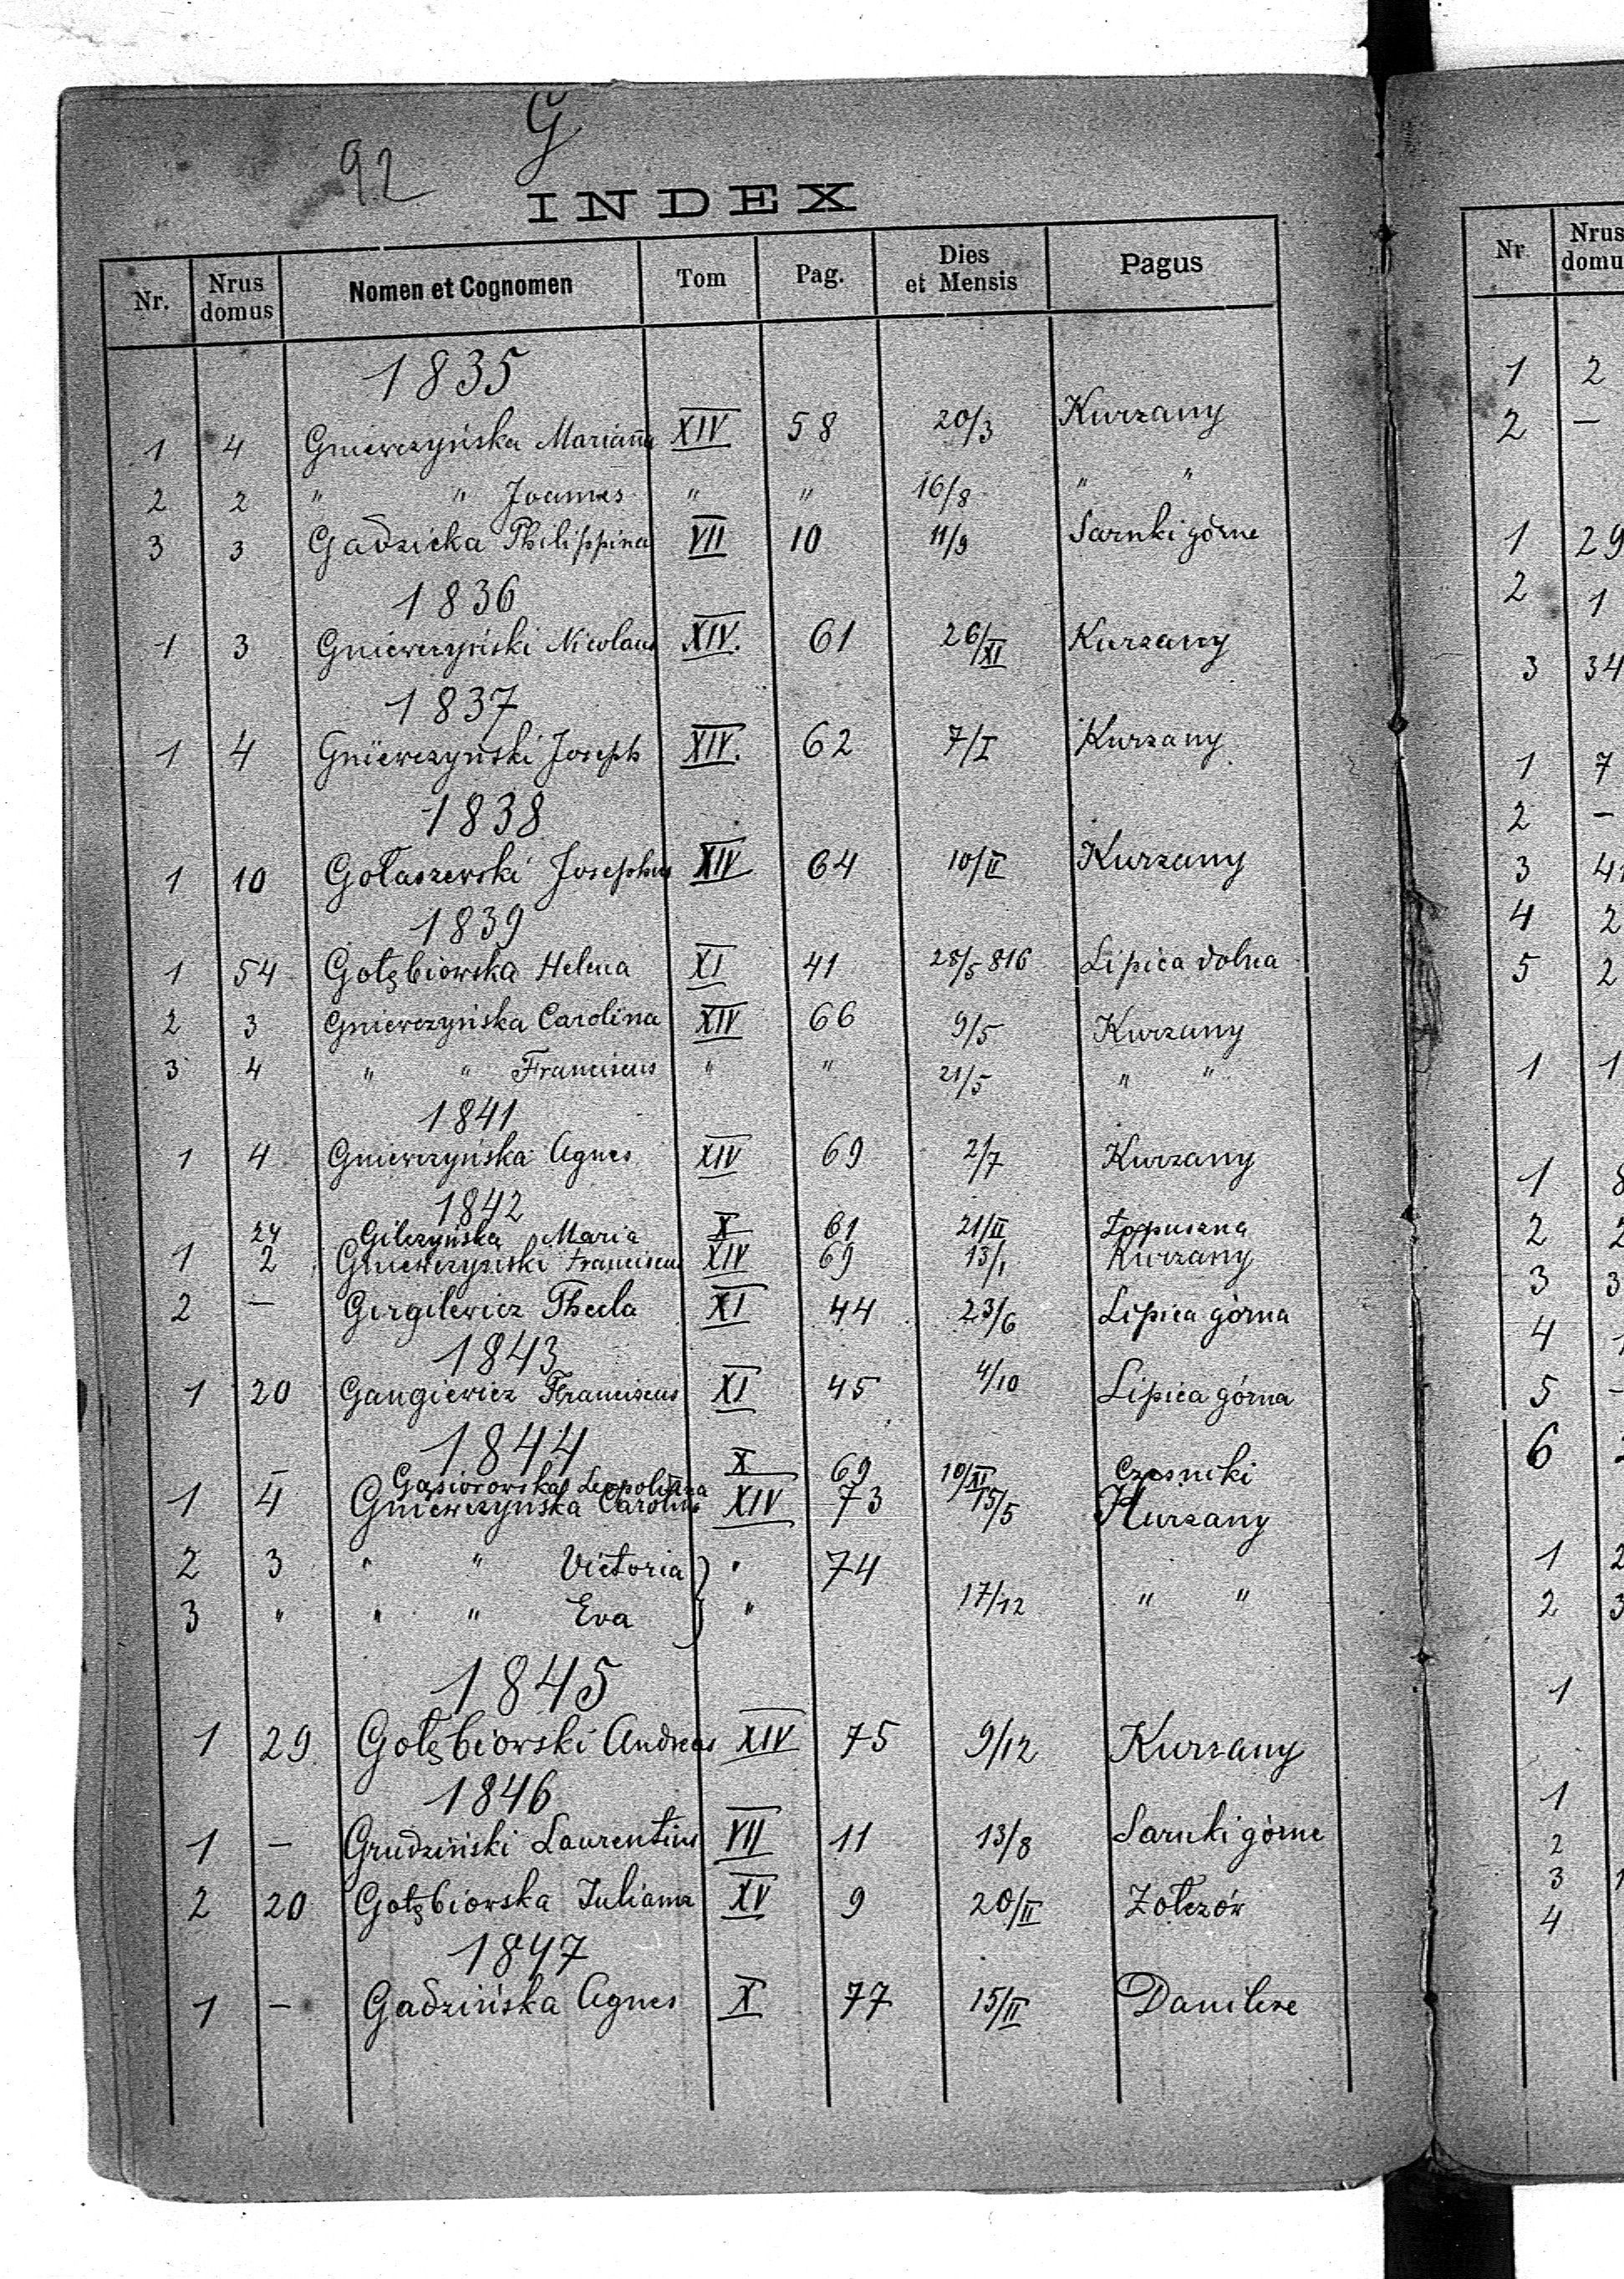 G
92
INDEX
Nr. Nrus domus Nomen et Cognomen Tom Pag. Dies et Mensis Pagus
1835
1 4 Gniewczyńska Marianna XIV 58 20/3 Kurzany
2 2 " " Joannes " " 16/8 " "
3 3 Gadzicka Philippina VII 10 11/9 Sarnki górne
1836
1 3 Gniewczyński Nicolaus XIV. 61 26/XI Kurzany
1837
1 4 Gniewczyński Joseph XIV. 62 7/I Kurzany
1838
1 10 Gołaszewski Josephus XIV 64 10/II Kurzany
1839
1 54 Gołębiowska Helena XI 41 28/5 816 Lipica dolna
2 3 Gniewczyńska Carolina XIV 66 9/5 Kurzany
3 4 " " Franciscus " " 21/5 " "
1841
1 4 Gniewczyńska Agnes XIV 69 2/7 Kurzany
1842
24 Gilczyńska Maria X 61 21/II Łopuszna
1 2 Gniewczyński Franciscus XIV 69 13/1 Kurzany
2 — Girgilewicz Thecla XI 44 23/6 Lipica górna
1843
1 20 Gangiewicz Franciscus XI 45 4/10 Lipica górna
1844
— Gąsiorowska Leopoldina X 69 10/XI Czesniki
1 4 Gniewczyńska Carolina XIV 73 15/5 Kurzany
2 3 " " Victoria " 74
3 " " " Eva " 17/12 " "
1845
1 29 Gołębiowski Andreas XIV 75 9/12 Kurzany
1846
1 — Grudziński Laurentius VII 11 13/8 Sarnki górne
2 20 Gołębiowska Julianna XV 9 20/II Żołczów
1847
1 — Gadzińska Agnes X 77 15/II Danilcze
Nr Nrus domu
1 2
2 —
1 29
2 1
3 34
1 7
2 —
3 41
4 2
5 2
1 1
1 8
2 2
3 3
4
5 -
6
1 2
2 3
1
1
2
3 1
4